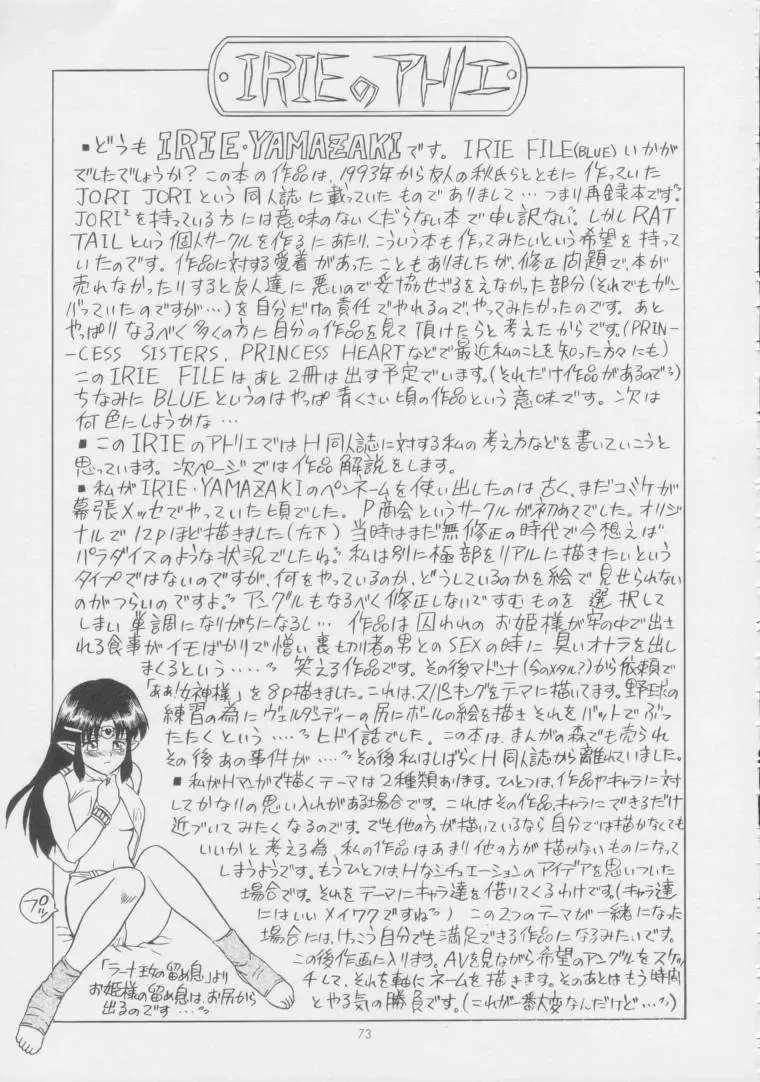 IRIEのアトリエ
▪どうも IRIE・YAMAZAKIです。 IRIE FILE(BLUE) いかが
でしたでしょうか? この本の作品は、1993年から友人の秋氏らとともに作っていた
JORI JORIという同人誌に載っていたものでありまして… つまり再録本です。
JORI²を持っている方には意味のないくだらない本で申し訳ない。しかしRAT
TAILという個人サークルを作るにあたり、こういう本も作ってみたいという希望を持って
いたのです。作品に対する愛着があったこともありましたが、修正問題で、本が
売れなかったりすると友人達に悪いので妥協せざるをえなかった部分(それでもガン
バっていたのですが…)を自分だけの責任でやれるので、やってみたかったのです。あと
やっぱりなるべく多くの方に自分の作品を見て頂けたらと考えたからです。(PRIN-
-CESS SISTERS, PRINCESS HEARTなどで最近私のことを知った方々にも)
このIRIE FILEはあと2冊は出す予定でいます。(それだけ作品があるので)
ちなみにBLUEというのはやっぱ青くさい頃の作品という意味です。次は
何色にしようかな…
▪このIRIEのアトリエではH同人誌に対する私の考え方などを書いていこうと
思っています。次ページでは作品解説をします。
▪私がIRIE・YAMAZAKIのペンネームを使い出したのは古く、まだコミケが
幕張メッセでやっていた頃でした。P商会というサークルが初めてでした。オリジ
ナルで12pほど描きました(左下) 当時はまだ無修正の時代で今想えば
パラダイスのような状況でしたね。私は別に極部をリアルに描きたいという
タイプではないのですが、何をやっているのか、どうしているのかを絵で見せられない
のがつらいのですよ。アングルもなるべく修正しないですむものを選択して
しまい単調になりがちになるし… 作品は囚われのお姫様が牢の中で出さ
れる食事がイモばかりで憎い裏切り者の男とのSEXの時に臭いオナラを出し
まくるという…… 笑える作品です。その後マドンナ(今のメタル?)から依頼で
「ああ!女神様」を8p描きました。これは、スパンキングをテーマに描いてます。野球の
練習の為にヴェルダンディーの尻にボールの絵を描きそれをバットでぶっ
たたくという…… ヒドイ話でした。この本は、まんがの森でも売られ
その後あの事件が…… その後私はしばらくH同人誌から離れていました。
▪私がHマンガで描くテーマは2種類あります。ひとつは、作品やキャラに対
してかなりの思い入れがある場合です。これはその作品、キャラにできるだけ
近づいてみたくなるのです。でも他の方が描いているなら自分では描かなくても
いいかと考える為、私の作品はあまり他の方が描かないものになって
しまうようです。もうひとつはHなシチュエーションのアイデアを思いついた
場合です。それをテーマにキャラ達を借りてくるわけです。(キャラ達
にはいいメイワクですね) この2つのテーマが一緒になった
場合には、けっこう自分でも満足できる作品になるみたいです。
この後作画に入ります。AVを見ながら希望のアングルをスケッ
チして、それを軸にネームを描きます。そのあとはもう時間
とやる気の勝負です。(これが一番大変なんだけど…)
プッ
「ラーナ王女の留め息」より
お姫様の留め息は、お尻から
出るのです…
73